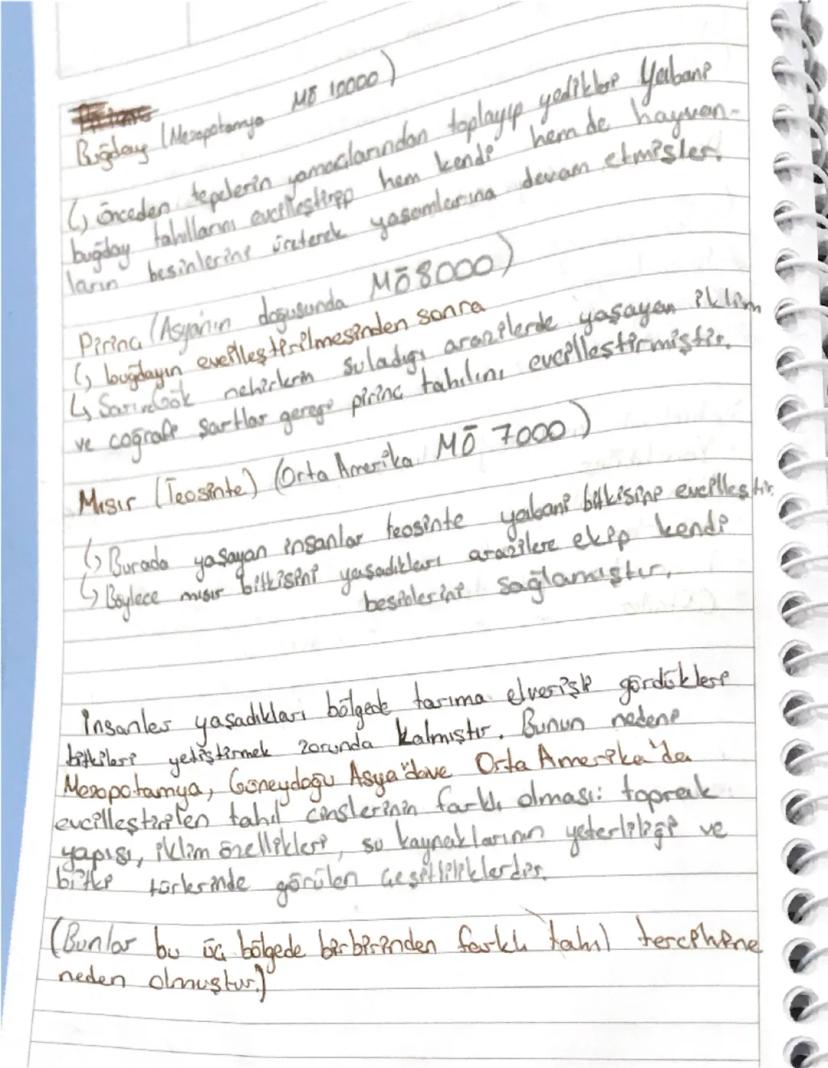 Buğday (Mezopotamya MÖ 10000)
↳ Önceden tepelerin yamaçlarından toplayıp yedikleri Yabani
buğday tahıllarını evcilleştirip hem kendi hem de hayvan-
ların besinlerini üreterek yaşamlarına devam etmişler.
Pirinç (Asya'nın doğusunda MÖ 8000)
↳ buğdayın evcilleştirilmesinden sonra
↳ Sarı Gök nehirlerin suladığı arazilerde yaşayan iklim
ve coğrafi şartlar gereği pirinç tahılını evcilleştirmiştir.
Mısır (Teosinte) (Orta Amerika MÖ 7000)
↳ Burada yaşayan insanlar teosinte yabani bitkisini evcilleştir.
↳ Böylece mısır bitkisini yaşadıkları arazilere ekip kendi
besinlerini sağlamıştır.
İnsanlar yaşadıkları bölgede tarıma elverişli gördükleri
bitkileri yetiştirmek zorunda kalmıştır. Bunun nedeni
Mezopotamya, Güneydoğu Asya'da ve Orta Amerika'da
evcilleştirilen tahıl cinslerinin farklı olması: toprak
yapısı, iklim özellikleri, su kaynaklarının yeterliliği ve
bitki türlerinde görülen çeşitliliklerdir.
(Bunlar bu üç bölgede birbirinden farklı tahıl tercihine
neden olmuştur.)